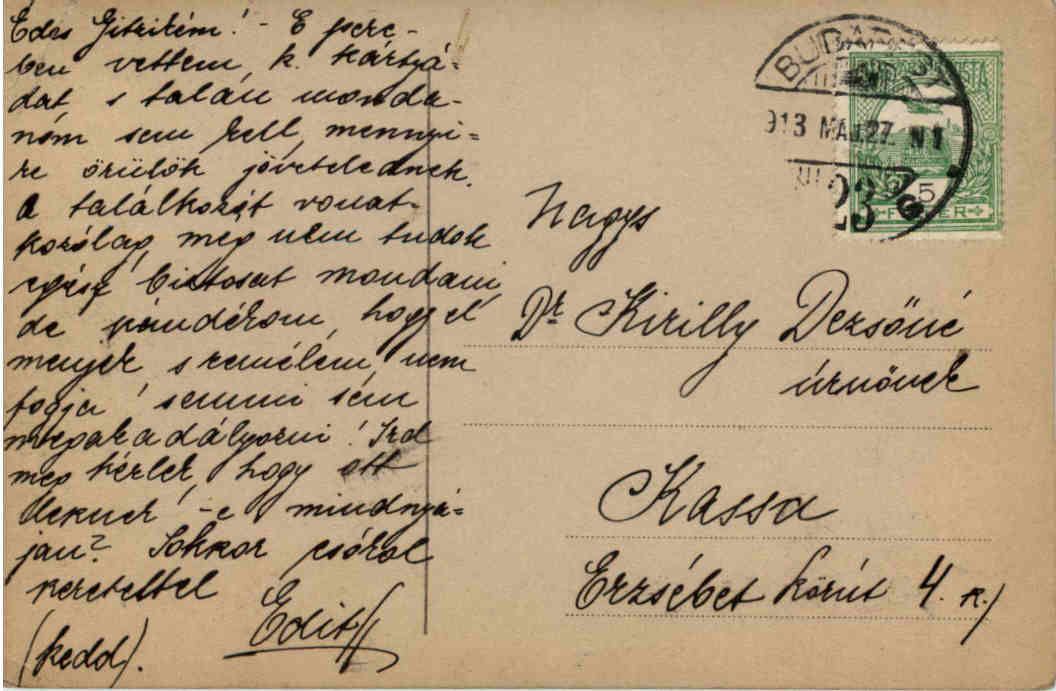 Édes Gitzikém! - E perc-
ben vettem k. kártyá-
dat s talán monda-
nom sem kell, mennyi-
re örülök jövetelednek.
A találkozást vonat-
kozólag még nem tudok
egész biztosat mondani,
de szándékom, hogy el
menjek s remélem, nem
fogja semmi sem
megakadályozni! Írd
meg kérlek, hogy ott
lesznek-e mindnyá-
jan? Sokszor csókol
szeretettel
Edit
(kedd).
BUDAPEST
913 MÁJ 27. N1
23
5
FILLÉR
Nagys
Dr Kirilly Dezsőné
úrnőnek
Kassa
Erzsébet körút 4. sz.)